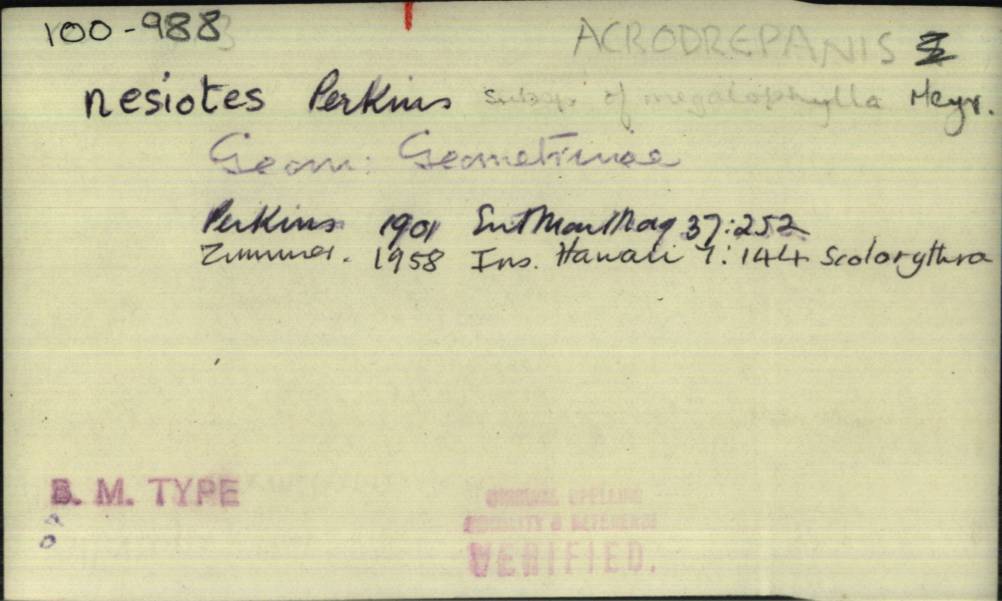 100-988
ACRODREPANIS
nesiotes Perkins subsp. of megalophylla Meyr.
Geom: Geometrinae
Perkins 1901 Ent Mon Mag 37:252
Zimmer. 1958 Ins. Hawaii 7:144 Scolorythra
B. M. TYPE
ORIGINAL SPELLING
LOCALITY & REFERENCE
VERIFIED.